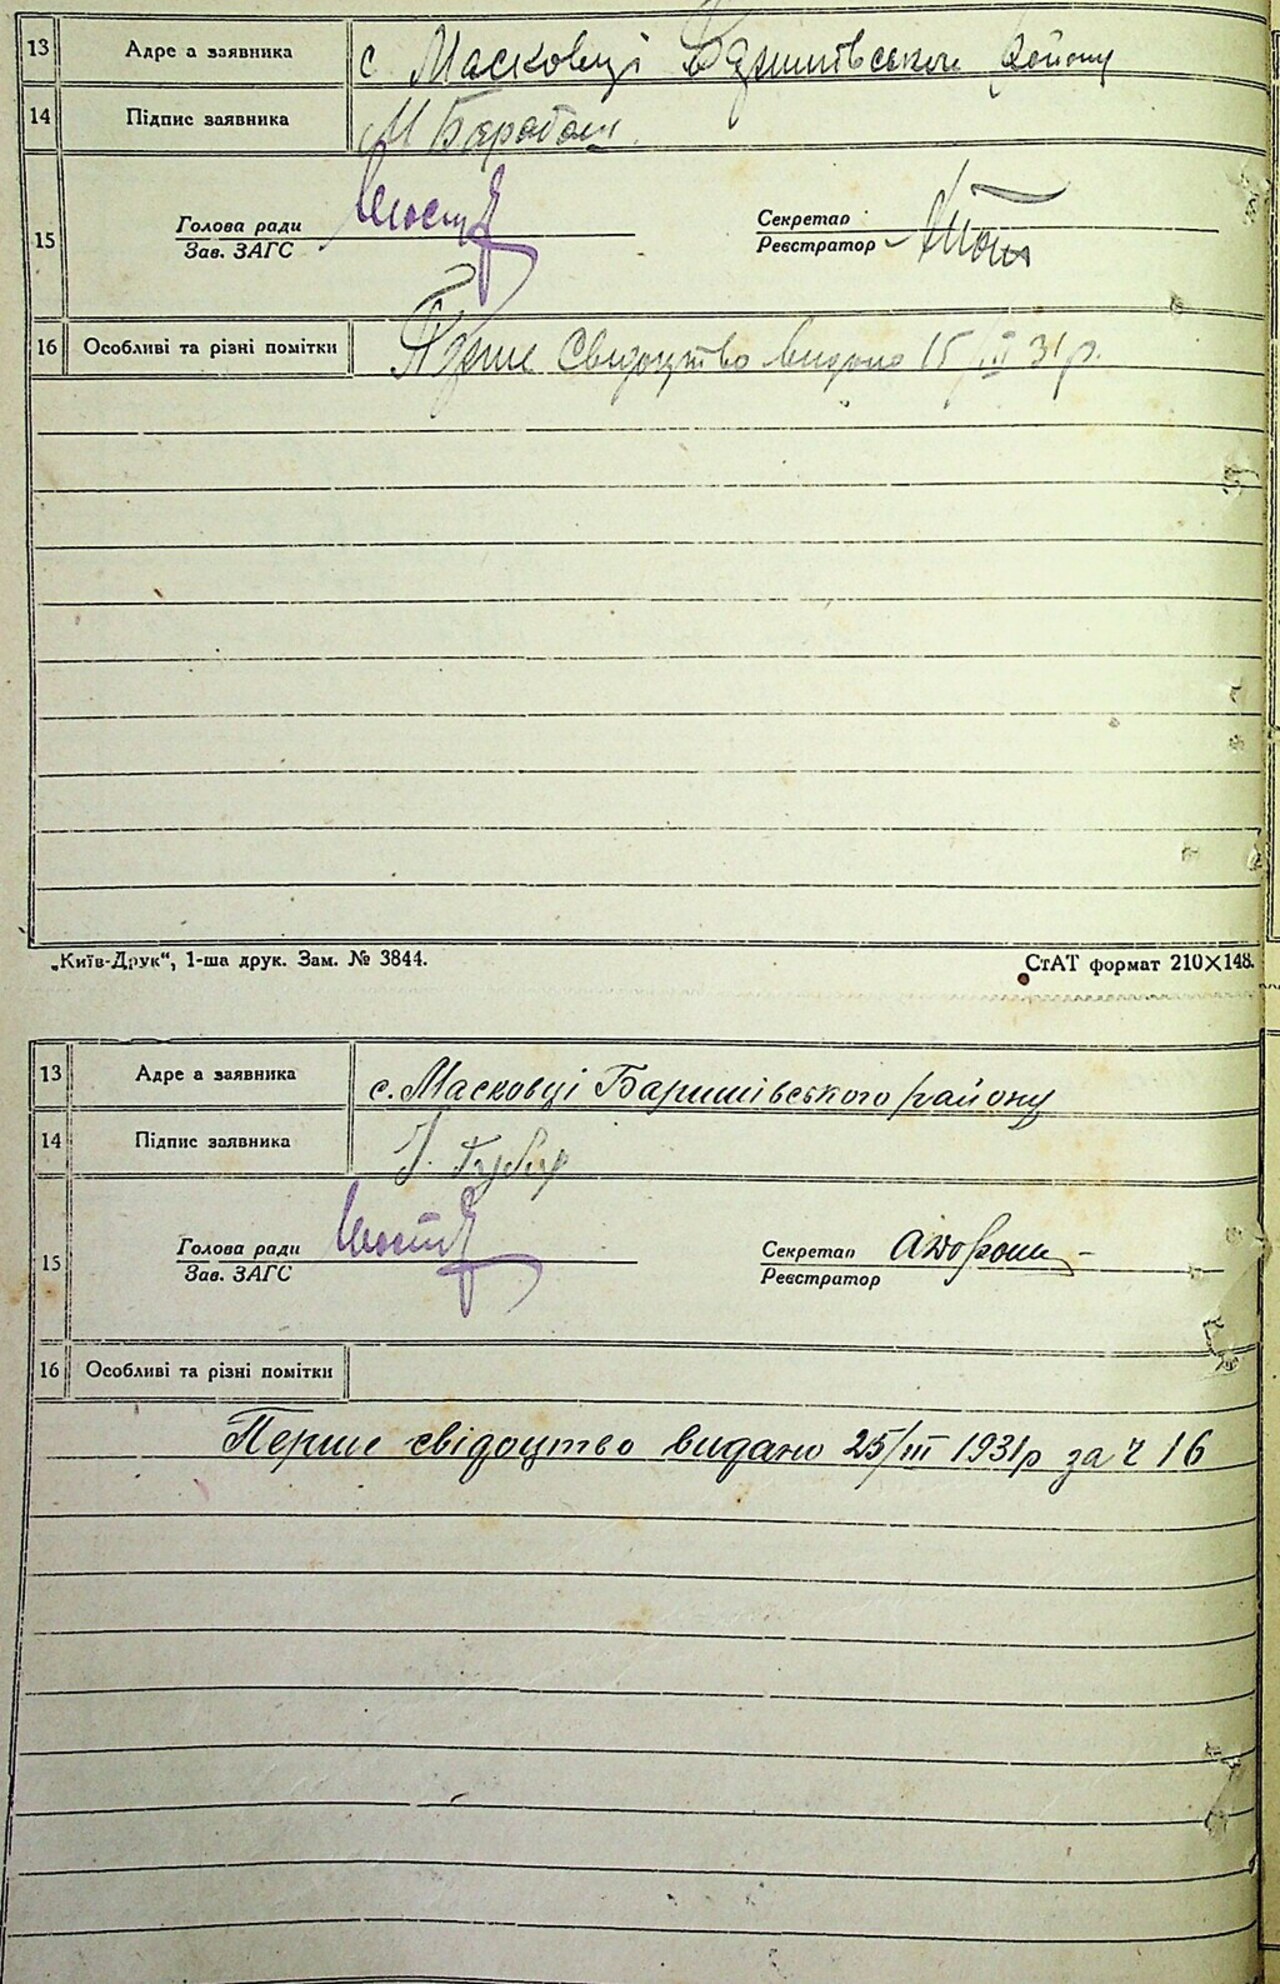 13 Адре а заявника с Масковці Баришівського Району
14 Підпис заявника М Барабаш
15 Голова ради Секретар
Зав. ЗАГС Реєстратор
16 Особливі та різні помітки Перше Свидоцтво видано 15/III 31 р.
„Київ-Друк“, 1-ша друк. Зам. № 3844. СтАТ формат 210×148.
13 Адре а заявника с. Масковці Баришівського району
14 Підпис заявника
15 Голова ради Секретар
Зав. ЗАГС Реєстратор
16 Особливі та різні помітки
Перше свідоцтво видано 25/III 1931р за ч 16